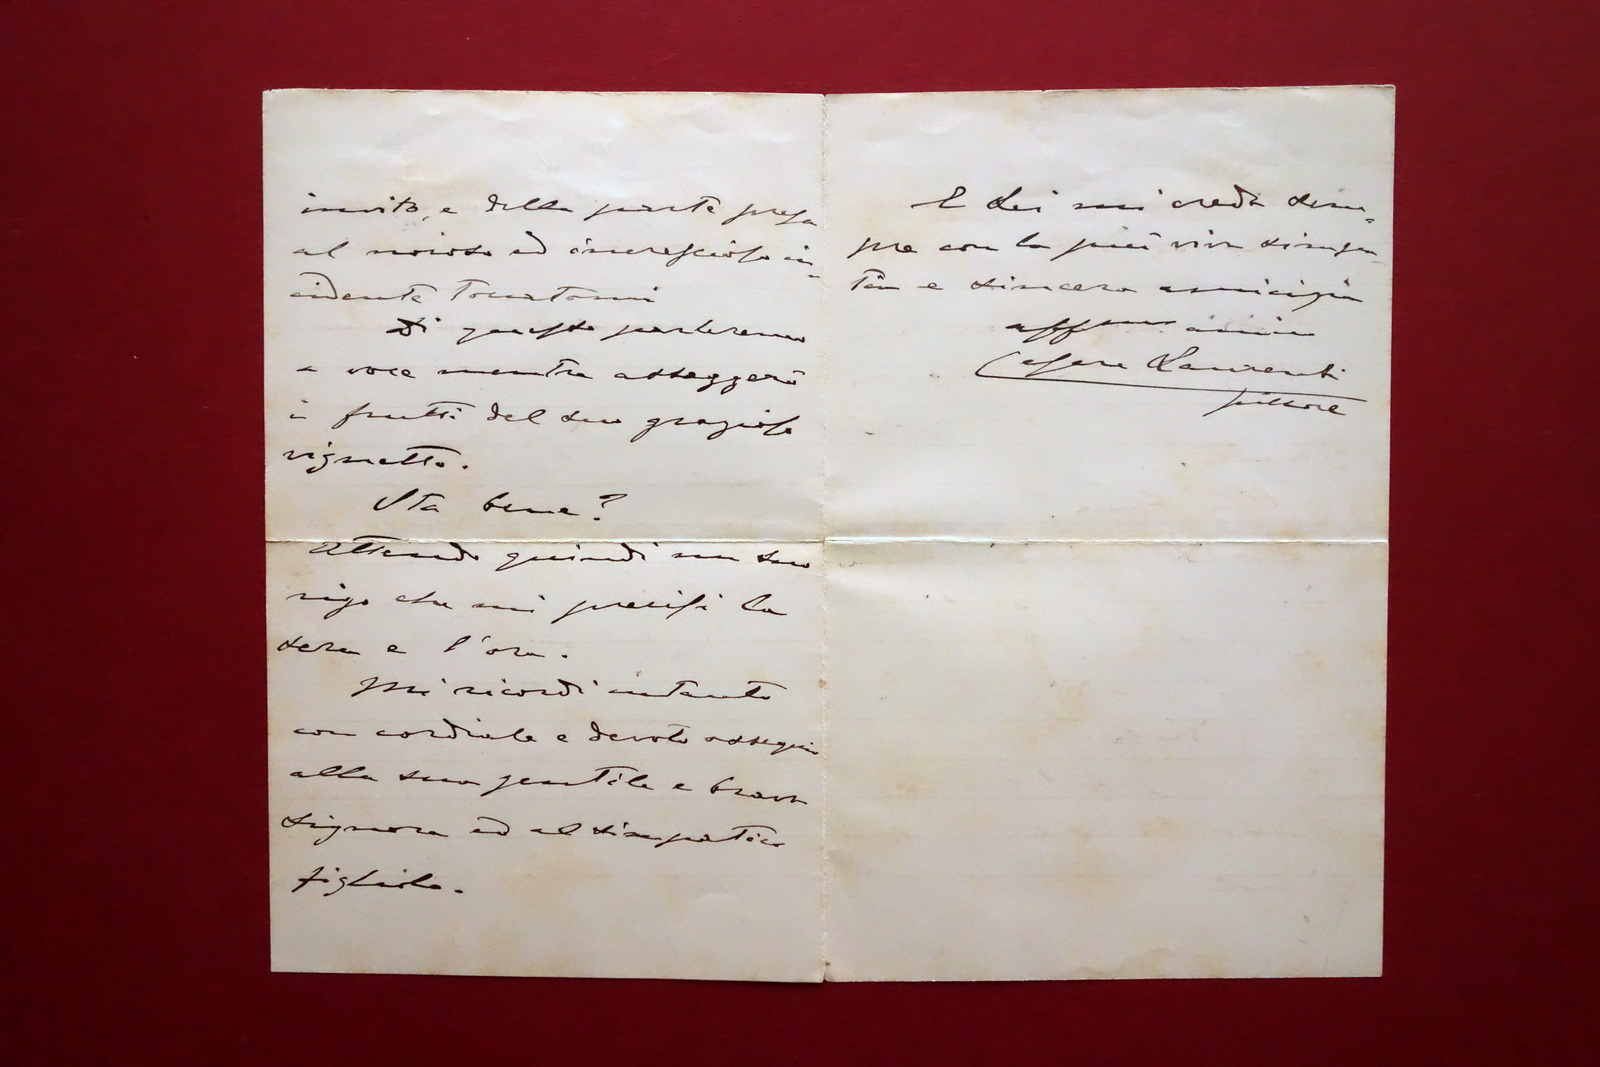 invito, e della parte presa
al noioso ed increscioso in-
cidente Tomatoni
Di questo parleremo
a voce mentre assaggerò
i frutti del suo grazioso
vignetto.
Sta bene?
Attendo quindi un suo
rigo che mi precisi la
sera e l'ora.
Mi ricordi intanto
con cordiale e devoto ossequio
alla sua gentile e brava
Signora ed al simpatico
figliolo.
E Lei mi creda sem-
pre con la più viva simpa-
tia e sincera amicizia
aff.mo amico
Cesare Laurenti
pittore